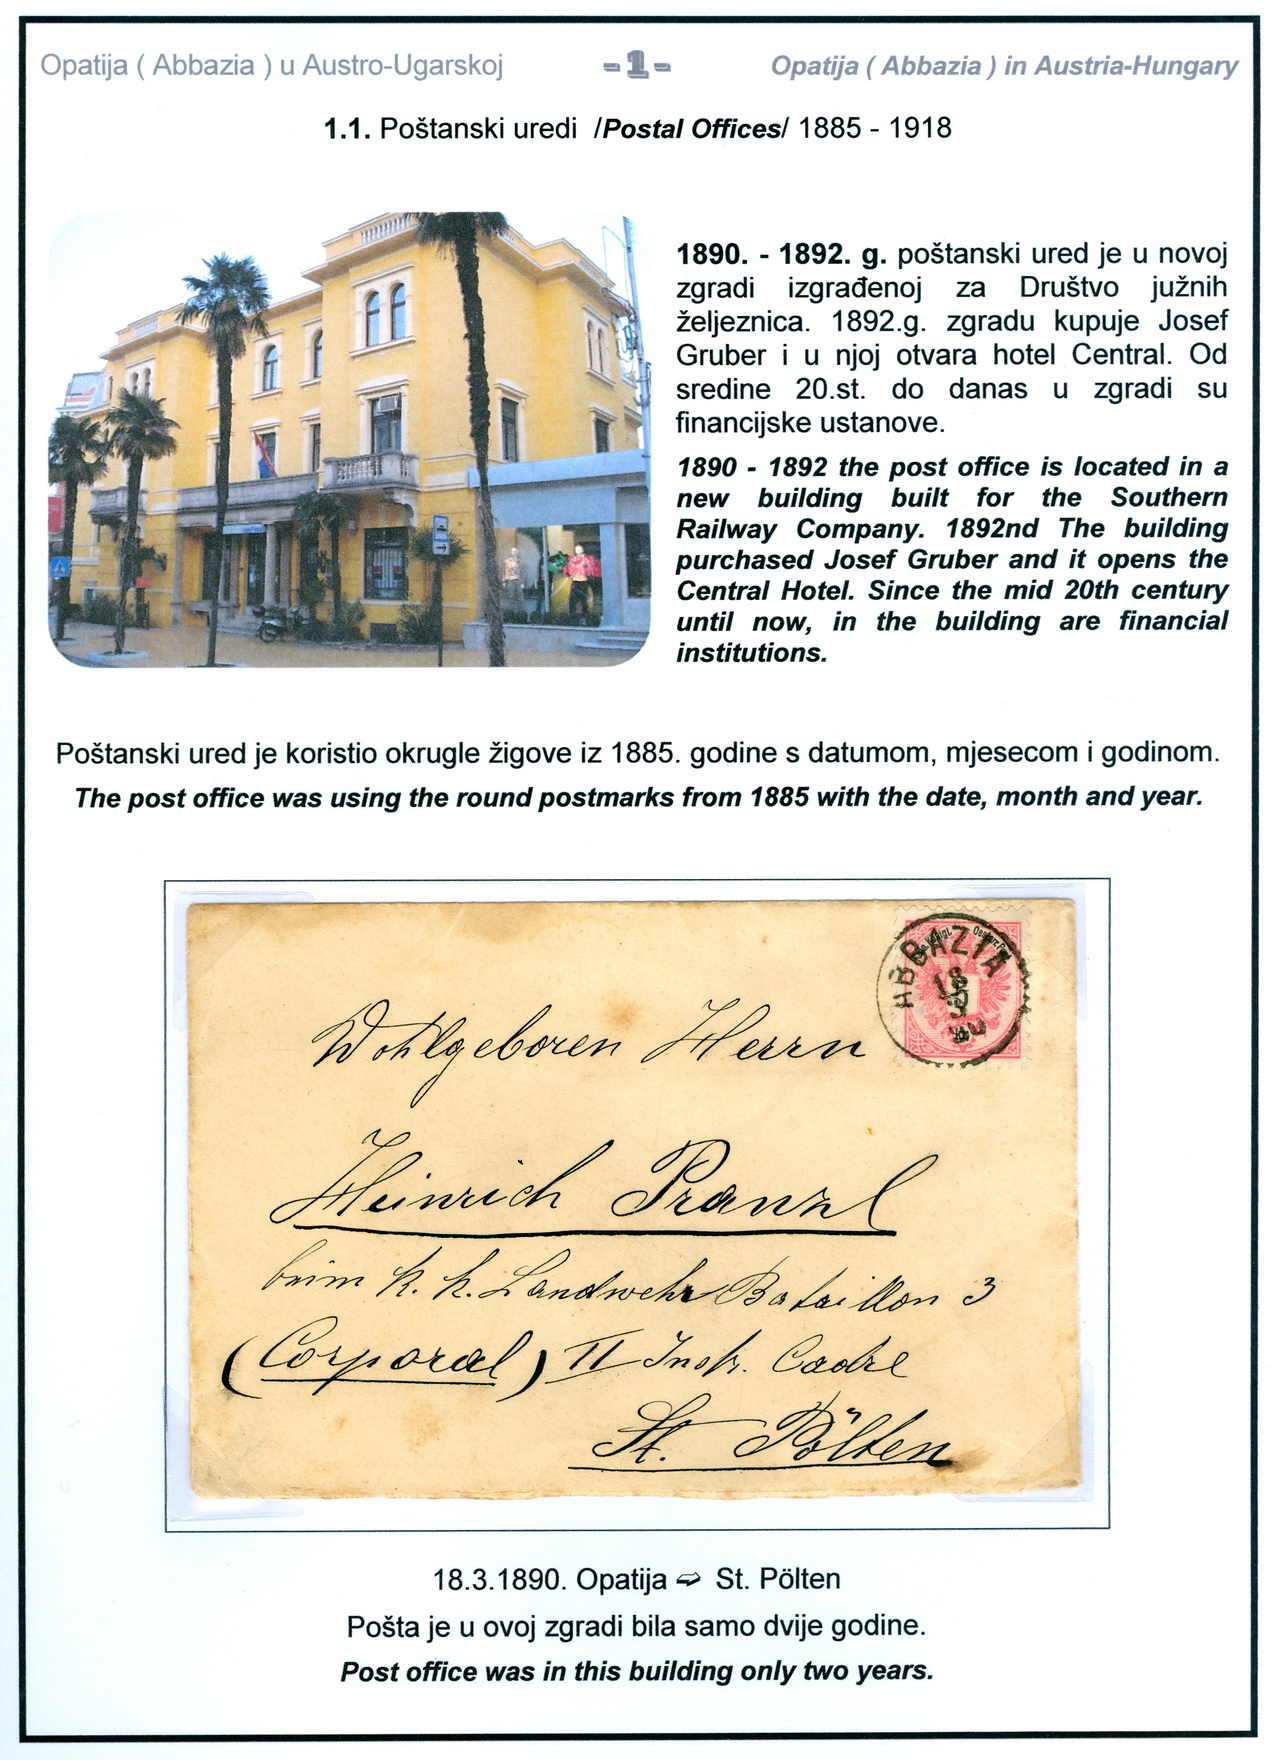 Opatija ( Abbazia ) u Austro-Ugarskoj
-1-
Opatija ( Abbazia ) in Austria-Hungary
1.1. Poštanski uredi /Postal Offices/ 1885 - 1918
1890. - 1892. g. poštanski ured je u novoj
zgradi izgrađenoj za Društvo južnih
željeznica. 1892.g. zgradu kupuje Josef
Gruber i u njoj otvara hotel Central. Od
sredine 20.st. do danas u zgradi su
financijske ustanove.
1890 - 1892 the post office is located in a
new building built for the Southern
Railway Company. 1892nd The building
purchased Josef Gruber and it opens the
Central Hotel. Since the mid 20th century
until now, in the building are financial
institutions.
Poštanski ured je koristio okrugle žigove iz 1885. godine s datumom, mjesecom i godinom.
The post office was using the round postmarks from 1885 with the date, month and year.
ABBAZIA
18
3
90
Wohlgeboren Herrn
Heinrich Pranzl
beim k. k. Landwehr Bataillon 3
(Corporal) II Instr. Cadre
St. Pölten
18.3.1890. Opatija ➫ St. Pölten
Pošta je u ovoj zgradi bila samo dvije godine.
Post office was in this building only two years.